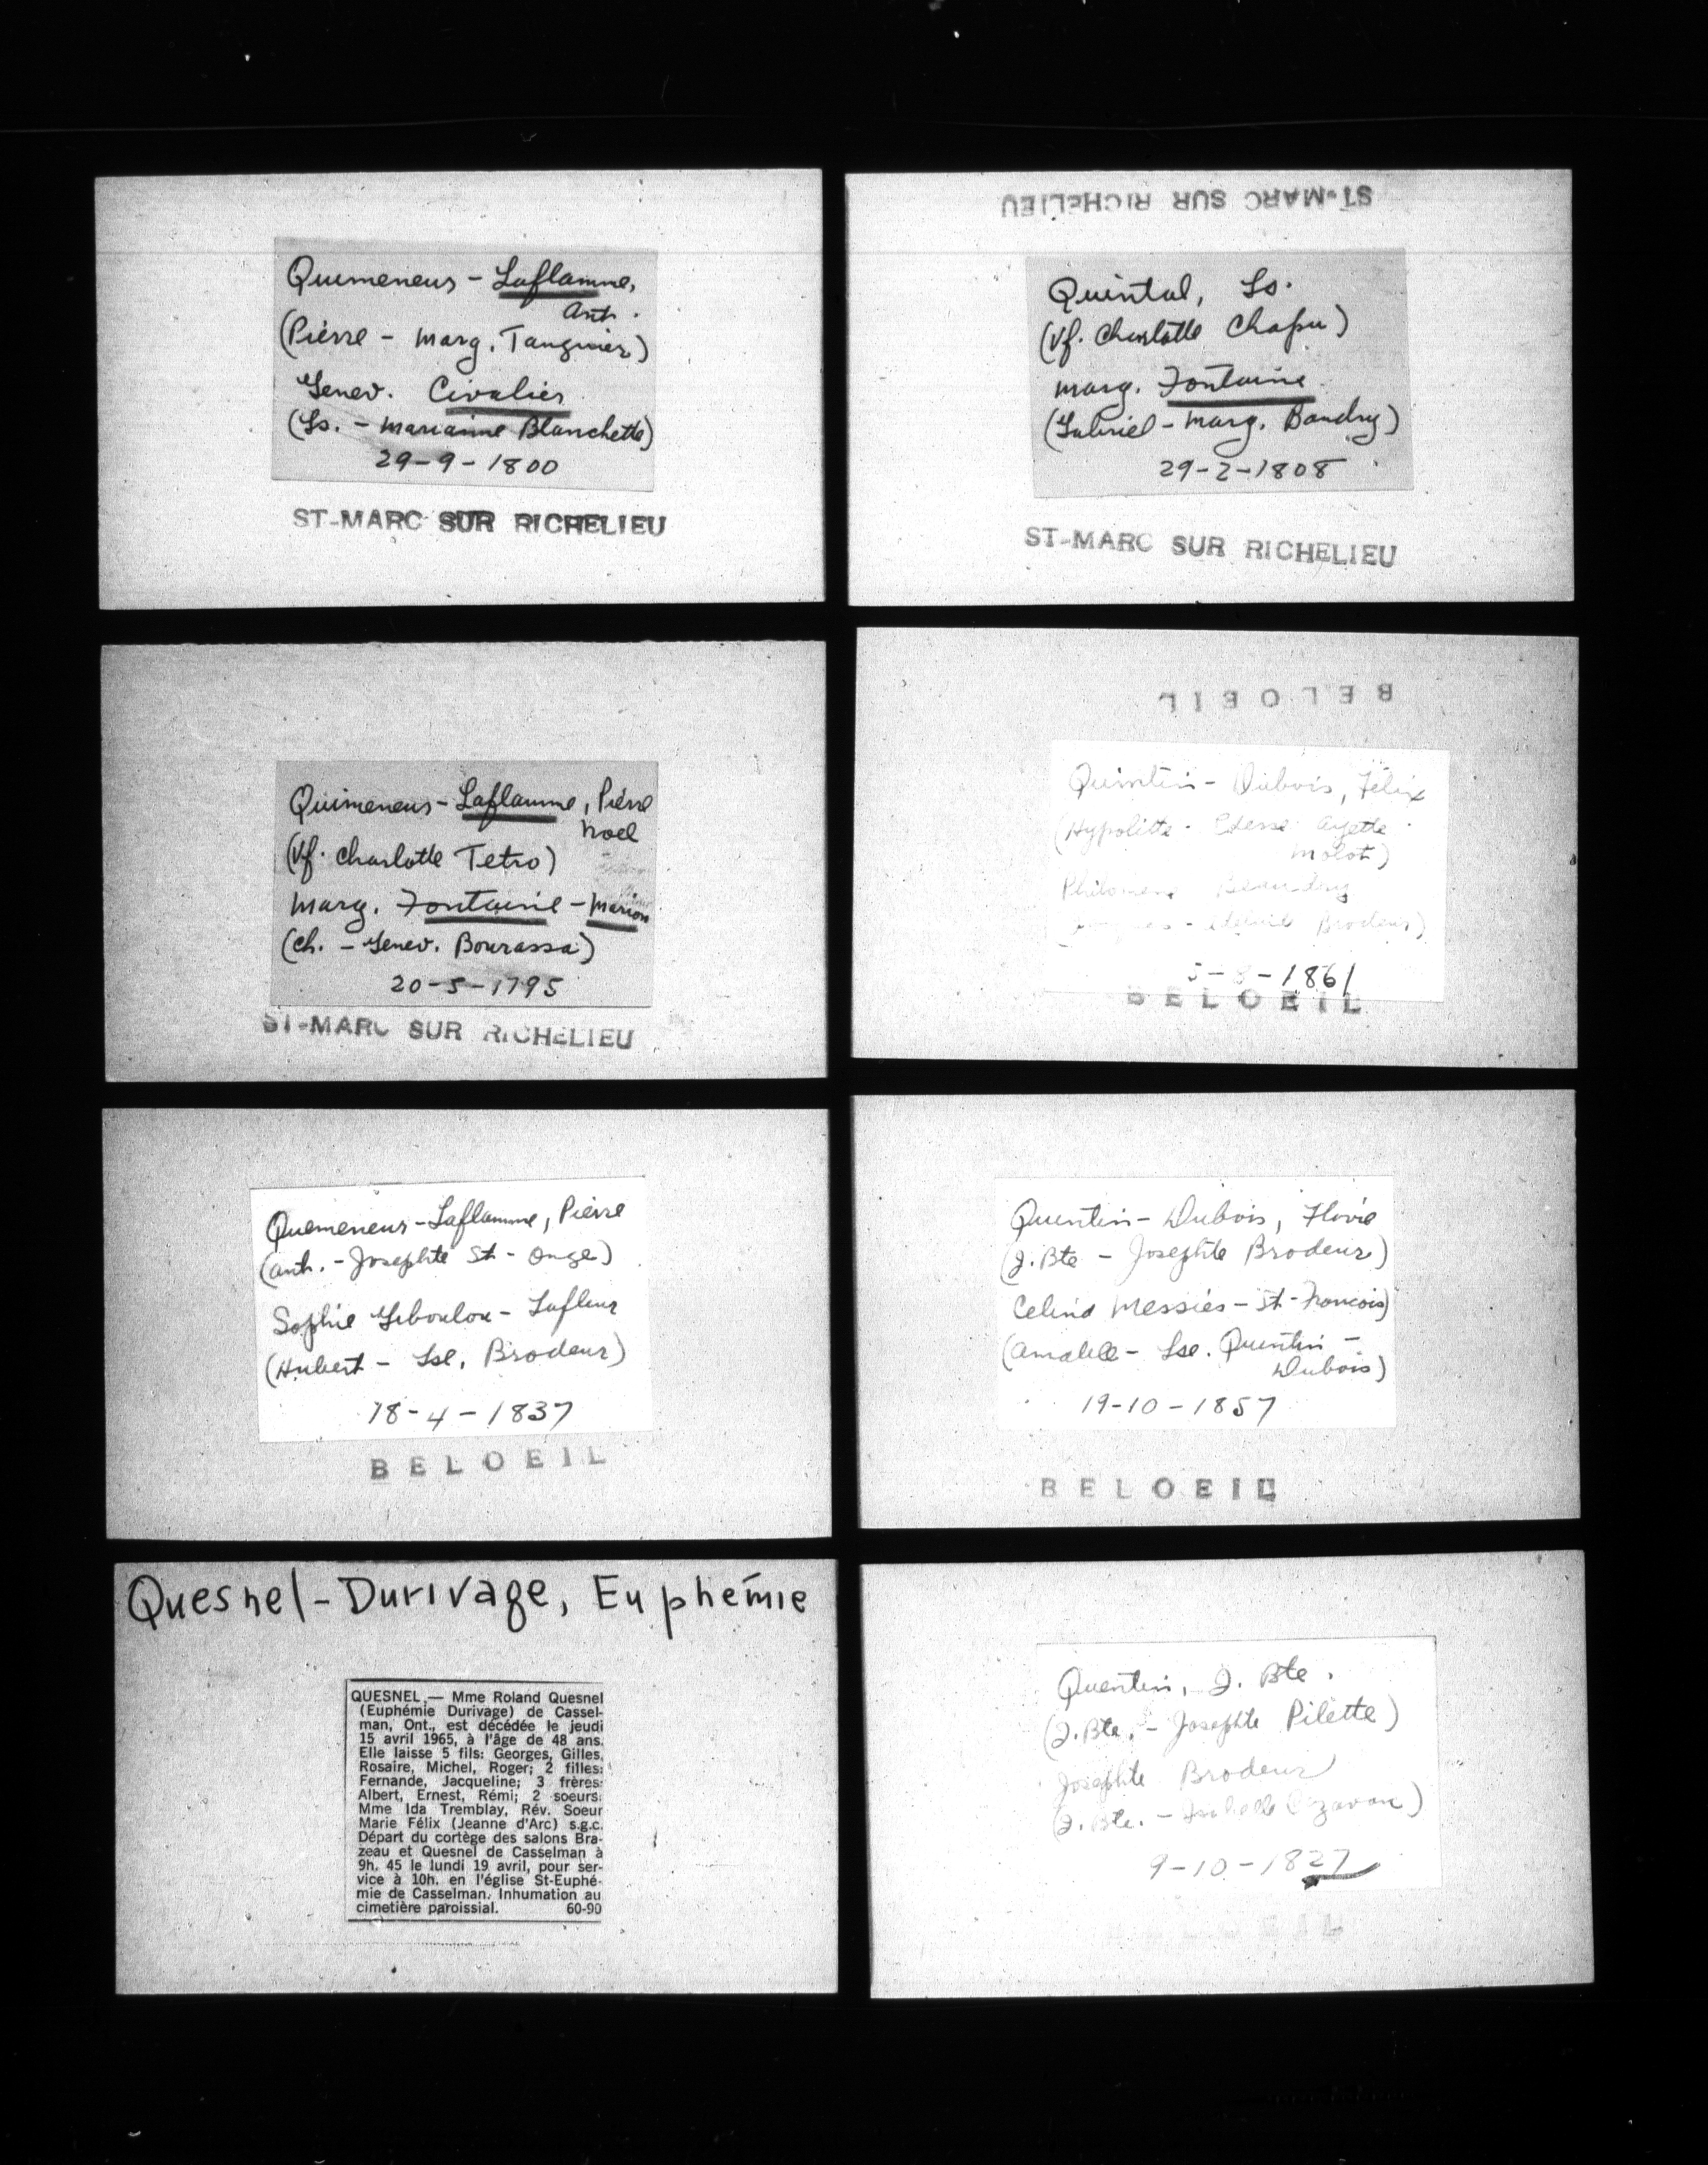 Quemeneur - Laflamme,
Ant.
(Pierre - Marg. Tanguier)
Genev. Civalier
(Ls. - Marianne Blanchette)
29-9-1800
ST-MARC SUR RICHELIEU
Quimeneur - Laflamme, Pierre
Noel
(Vf. Charlotte Tetro)
Marg. Fontaine - Marion
(Ch. - Genev. Bourassa)
20-5-1795
ST-MARC SUR RICHELIEU
Quemeneur - Laflamme, Pierre
(Ant. - Josephte St-Onge)
Sophie Leboulou - Lafleur
(Hubert - Lse. Brodeur)
18-4-1837
BELOEIL
Quesnel - Durivage, Euphémie
QUESNEL — Mme Roland Quesnel
(Euphémie Durivage) de Cassel-
man, Ont., est décédée le jeudi
15 avril 1965, à l'âge de 48 ans.
Elle laisse 5 fils: Georges, Gilles,
Rosaire, Michel, Roger; 2 filles:
Fernande, Jacqueline; 3 frères:
Albert, Ernest, Rémi; 2 soeurs:
Mme Ida Tremblay, Rév. Soeur
Marie Félix (Jeanne d'Arc) s.g.c.
Départ du cortège des salons Bra-
zeau et Quesnel de Casselman à
9h. 45 le lundi 19 avril, pour ser-
vice à 10h. en l'église St-Euphé-
mie de Casselman. Inhumation au
cimetière paroissial. 60-90
ST-MARC SUR RICHELIEU
Quintal, Ls.
(Vf. Charlotte Chapu)
Marg. Fontaine
(Gabriel - Marg. Baudry)
29-2-1808
ST-MARC SUR RICHELIEU
BELOEIL
Quintin - Dubois, Félix
(Hypolitte - Ayette
Molot)
Beaudry
Brodeur)
1861
BELOEIL
Quentin - Dubois, Flavie
(J. Bte - Josephte Brodeur)
Celina Messier - St-Francois
(Amable - Lse. Quentin -
Dubois)
19-10-1857
BELOEIL
Quentin, J. Bte.
(J. Bte. - Josephte Pilette)
Josephte Brodeur
(J. Bte. - Isabelle Cazavan)
9-10-1827